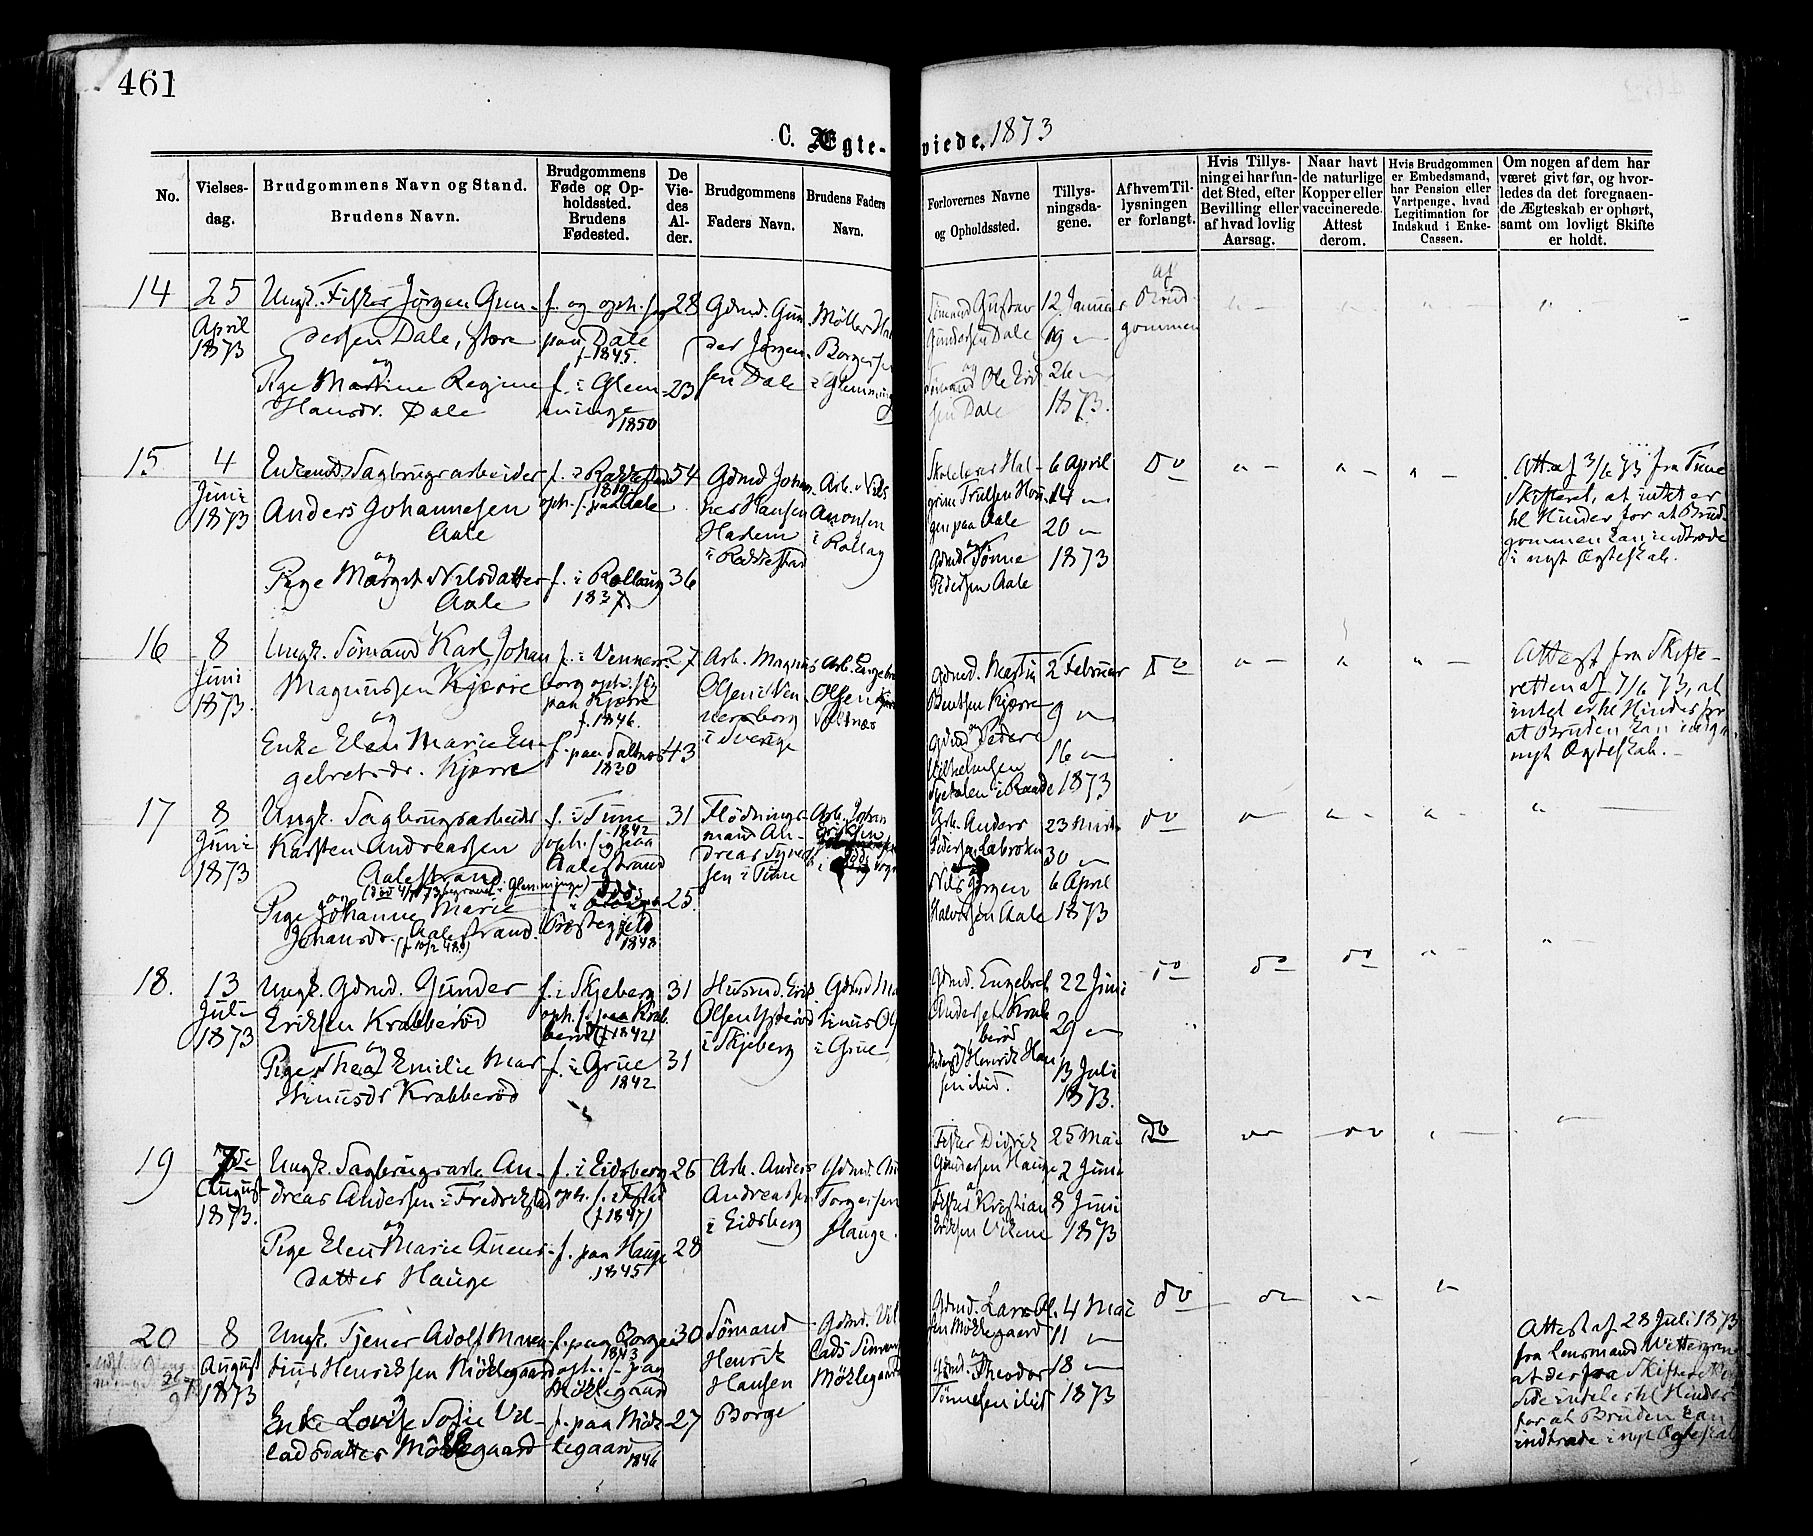 461
C. Ægte-viede. 1873
No.
Vielses-dag.
Brudgommens Navn og Stand.
Brudens Navn.
Brudgommens
Føde og Op-
holdssted.
Brudens
Fødested.
De
Vie-
des
Al-
der.
Brudgommens
Faders Navn.
Brudens Faders
Navn.
Forlovernes Navne
og Opholdssted.
Tillys-
ningsda-
gene.
Af hvem Til-
lysningen
er forlangt.
Hvis Tillys-
ning ei har fun-
det Sted, efter
Bevilling eller
af hvad lovlig
Aarsag.
Naar havt
de naturlige
Kopper eller
vaccinerede.
Attest
derom.
Hvis Brudgommen
er Embedsmand,
har Pension eller
Vartpenge, hvad
Legitimation for
Indskud i Enke-
Cassen.
Om nogen af dem har
været givt før, og hvor-
ledes da det foregaaen-
de Ægteskab er ophørt,
samt om lovligt Skifte
er holdt.
14
25
April
1873
Ungk. Fisker Jørgen Gun-
dersen Dale, store
og
Pige Martine Regine
Hansdr. Dale
f. og oph. sig
paa Dale
f. 1845.
f. i Glem-
minge
1850
28
23
Gdmd. Gun-
der Jørgen-
sen Dale
Møller Ha
Borgers
i Glemming
Sømand Gustav
Gundersen Dale
og
Sømand Ole Erik
sen Dale
12 Januar
19 "
26 "
1873.
af
Brud-
gommen
15
4
Juni
1873
Enkemd. Sagbrugsarbeider
Anders Johannesen
Aale
og
Pige Marget Nilsdatter
Aale
f. i Rakkestad
1819
oph. s. paa Aale
f. i Rollaug
1837
54
36
Gdmd Johan-
nes Hansen
Harlem
i Rakkestad
Arb. Nils
Amonsen
i Rollag
Skolelærer Hal-
grim Trulsen Hou-
gen paa Aale
og
Gdmd Tønne
Pedersen Aale
6 April
14 "
20 "
1873
Do
Att af 3/6 73 fra Tune
Skifteret, at intet er
til Hinder for at Brud-
gommen kan indtræde
i nyt Ægteskab.
16
8
Juni
1873.
Ungk. Sømand Karl Johan
Magnussen Kjærre
og
Enke Elen Marie En-
gebretsdr. Kjærre
f. i Venners-
borg oph. sig
paa Kjærre
f. 1846.
f. paa Saltnes
1830
27
43
Arb. Magnus
Olsen i Ven-
nersborg
i Sverige
Arb. Engebr
Olsen
Saltnæs
Gdmd. Martin
Bentsen Kjærre
og
Gdmd Peder
Vilhelmsen
i Raade
2 Februar
9 "
16 "
1873
Do
Attest fra Skifte-
retten af 7/6 73, at
intet er til Hinder for
at Bruden kan indgaa
nyt Ægteskab.
17
8
Juni
1873
Ungk. Sagbrugsarbeider
Karsten Andreassen
Aalestrand
og
Pige Johanne Marie
Johansdr. Aalestrand.
f. i Tune
1842
oph. sig paa
Aalestrand
Præstegjeld
1848
31
25.
Flødnings-
mand An-
dreas Syvert-
sen i Tune
Arb. Johan
Arb. Anders
Pedersen Labroken
og
Nils Jørgen
Halvorsen Aale
23 Marts
30 "
6 April
1873
do
18.
13
Juli
1873
Ungk. Gdmd. Gunder
Eriksen Krabberød
og
Pige Thea Emilie Mar-
tinusdr Krabberød
f. i Skjeberg
oph. s. paa Krab-
berød (f 1842)
f. i Grue
1842
31
31
Husmd. Erik
Olsen Ysterød
i Skjeberg
Gdmd Mar
tinus Ols
i Grue
Gdmd. Engebret
Anderset Krab-
berød
og
Anders Henrik Han
sen ibid.
22 Juni
29 "
13 Juli
1873.
do
do
do
19
7de
August
1873.
Ungk. Sagbrugsarb. An-
dreas Andersen i Fredrikstad
og
Pige Elen Marie Auens-
datter Hauge
f. i Eidsberg
oph. s. i F.stad
(f 1847)
f. paa Hauge
1845
26
28
Arb. Anders
Andreassen
i Eidsberg
Gdmd. Au
Torgersen
Hauge.
Fisker Didrik
Gundersen Hauge
og
Fisker Kristian
Eriksen Vikene
25 Mai
2 Juni
8 Juni
1873
Do
20
8
August
1873
Ungk. Tjener Adolf Maren-
tius Henriksen Møklegaard
og
Enke Lovise Sofie Vel-
ladsdatter Møklegaard
f. paa Borge
1843
oph. s. paa
Møklegaard
f. paa Møk-
legaard
1846
30
27
Sømand
Henrik
Hansen
Borge
Gdmd. Vel
lads Simon
Møklegaard
Gdmd. Lars Ol-
sen Møklegaard
og
Gdmd. Theodor
Tønnesen ibid
4 Mai
11 "
18 "
1873
do
Attest af 28 Juli 1873
fra Lensmand Wettergren
at der fra Skifterettens
Side intet er til Hinder
for at Bruden kan
indtræde i nyt Ægteskab